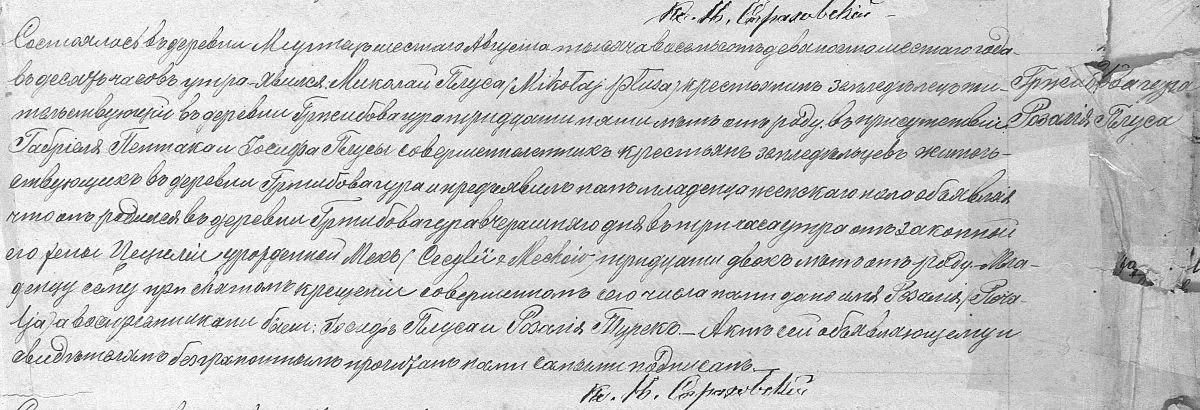 Кс. М. Страховскій
Состоялось въ деревни шестаго Августа тысяча восемьсотъ девяностошестаго года
въ десять часовъ утра. Явился Миколай Плуса (Mikołaj Plusa) крестьянинъ земледѣлецъ жи-
тельствующій въ деревни Гржибовагура тридцати пяти лѣтъ отъ роду въ присутствіи
Габріеля Пентака и Іосифа Плусы совершеннолетнихъ крестьянъ земледѣльцевъ жительс-
ствующихъ въ деревни Гржибовагура и предъявилъ намъ младенца женскаго пола объявляя
что онъ родился въ деревни Гржибовагура вчерашняго дня въ три часа утра отъ законной
его жены Цецеліи урожденной Мехъ ( тридцати двохъ лѣтъ отъ роду. Мла-
денцу сему при святомъ крещеніи совершенномъ сего числа нами дано имя Розалія (Roza-
lja) а воспреемниками были: Іосифъ Плуса и Розалія Турекъ. Актъ сей объявляющему и
свидѣтелямъ безграмотнымъ прочитанъ нами самыми подписанъ.
Кс. М. Страховскій
Гржибовагура
Розалія Плуса